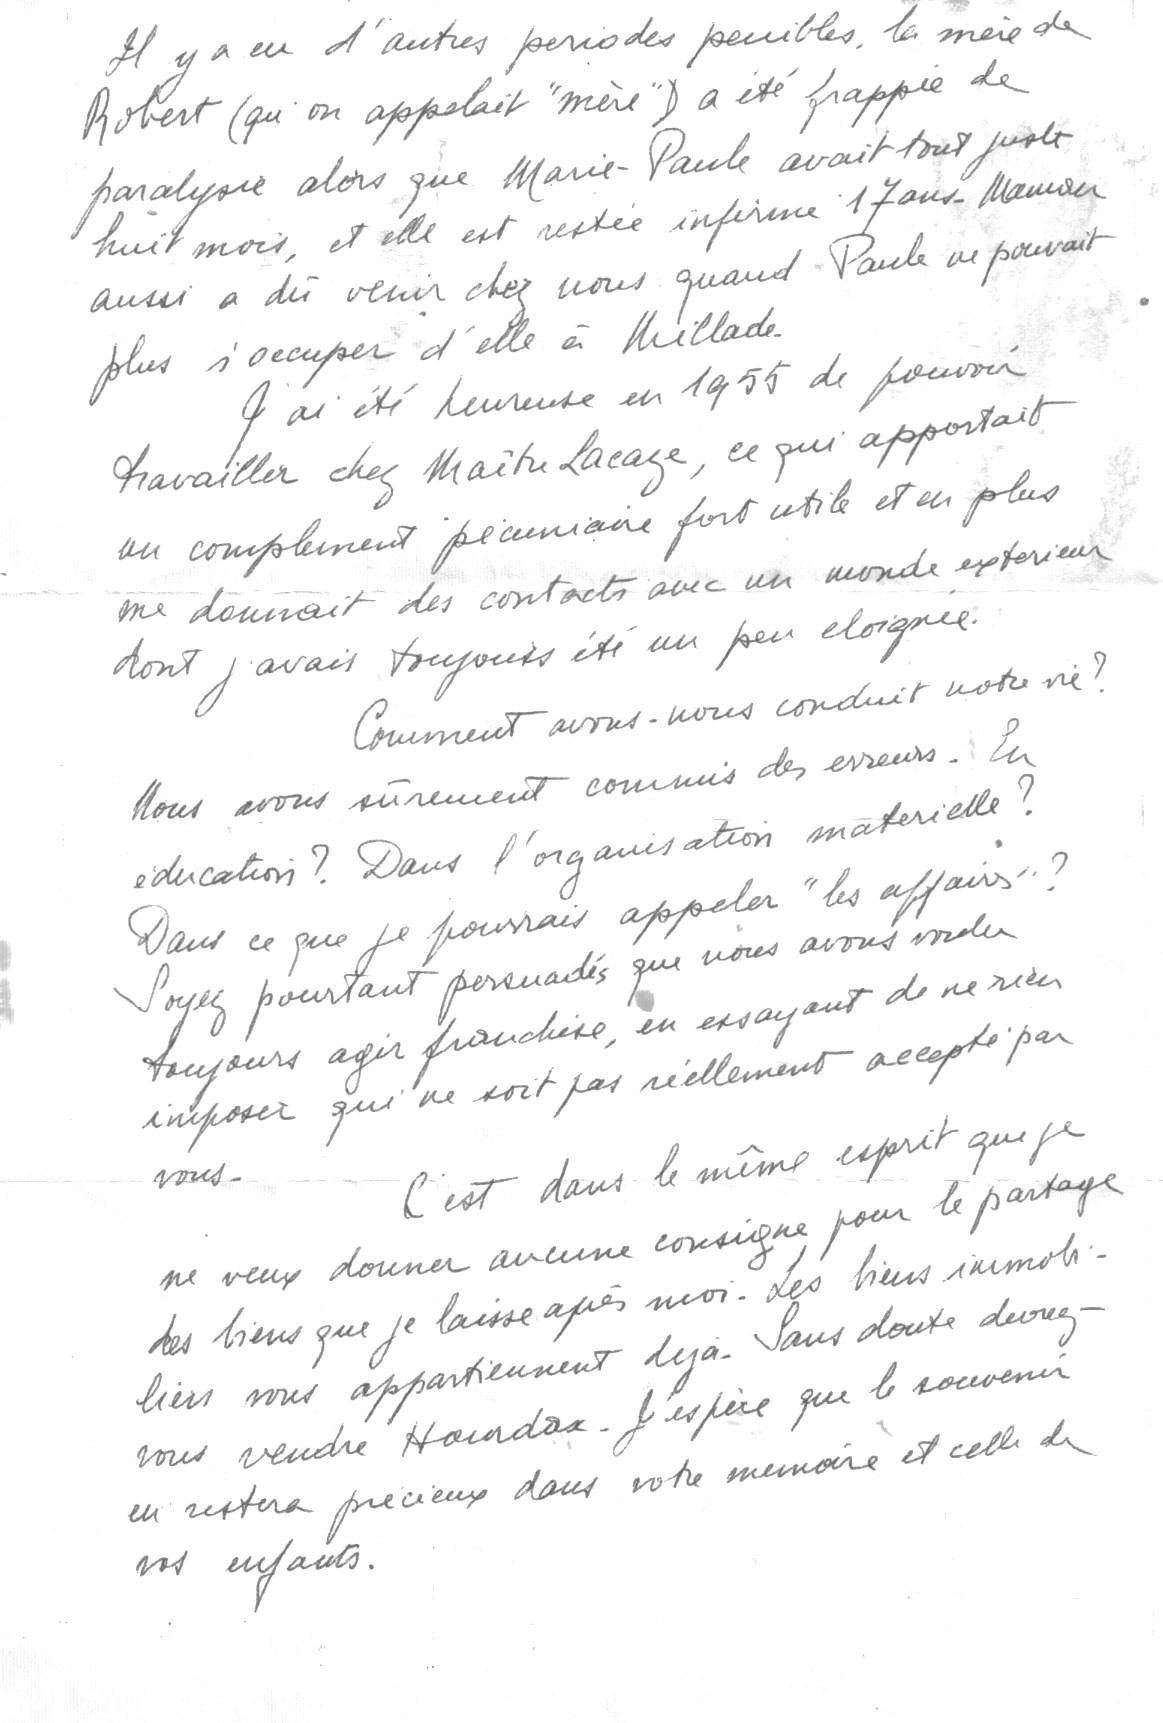 Il y a eu d'autres periodes penibles, la mère de
Robert (qu'on appelait "mère") a été frappée de
paralysie alors que Marie-Paule avait tout juste
huit mois, et elle est restée infirme 17 ans. Maman
aussi a dû venir chez nous quand Paule ne pouvait
plus s'occuper d'elle à Millade.
J'ai été heureuse en 1955 de pouvoir
travailler chez Maître Lacaze, ce qui apportait
un complement pécuniaire fort utile et en plus
me donnait des contacts avec un monde exterieur
dont j'avais toujours été un peu eloignée.
Comment avons-nous conduit notre vie?
Nous avons sûrement commis des erreurs. En
éducation? Dans l'organisation materielle?
Dans ce que je pourrais appeler "les affaires"?
Soyez pourtant persuadés que nous avons voulu
toujours agir franchise, en essayant de ne rien
imposer qui ne soit pas réellement accepté par
vous.
C'est dans le même esprit que je
ne veux donner aucune consigne pour le partage
des biens que je laisse après moi. Les biens immobi-
liers vous appartiennent déjà. Sans doute devrez-
vous vendre Hourdax. J'espère que le souvenir
en restera précieux dans votre memoire et celle de
vos enfants.